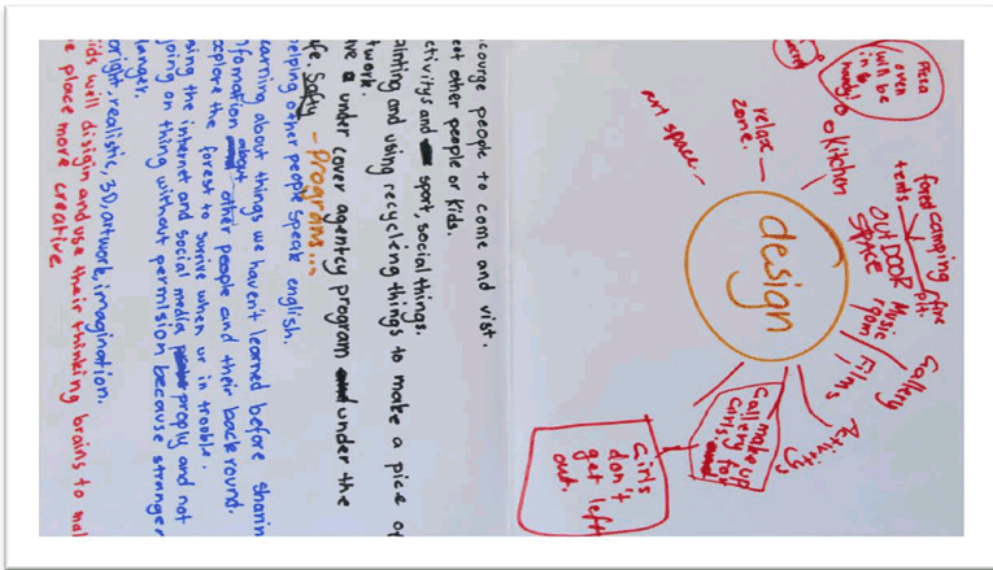 Pizza
oven
will be
in to be
handy!
secret
Kitchen
relax
zone.
art space
forest camping
tents
fire
pit.
OUTDOOR
SPACE
Music
room
Gallery
Films
Activitys
make up
Gallery for
Girls
Girls
don't
get left
out.
design
courge people to come and vist.
eet other people or kids.
ctivitys and sport, social things.
ainting and using recycleing things to make a pice of
twork.
ave a under cover agentcy program under the
ife. Safty - Programs...
elping other people speak english.
earning about things we haven't learned before sharin
nfomation about other people and their back round.
xplore the forest to survive when ur in trooble.
sing the internet and social media proply and not
oing on thing without permission because stranger
danger.
oright, realistic, 3D, artwork, imagination.
ids well disigin and use their thinking brains to mak
e place more creative.